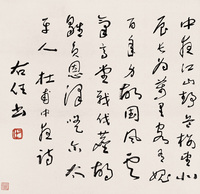 中夜江山靜危樓望北
辰長為萬里客有愧
百年身故國風雲
氣高堂戰伐塵胡
雛負恩澤嗟爾太
平人 杜甫中夜詩
右任書